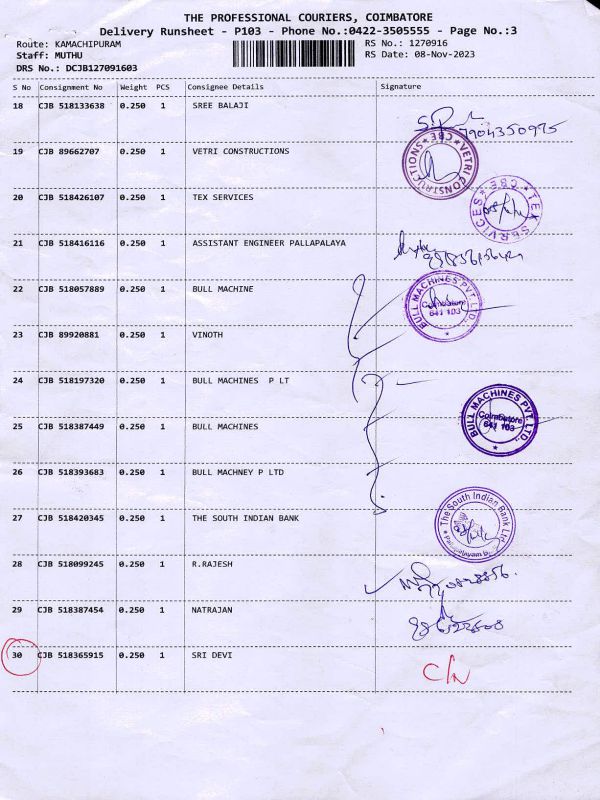 THE PROFESSIONAL COURIERS, COIMBATORE
Delivery Runsheet - P103 - Phone No.:0422-3505555 - Page No.:3
Route: KAMACHIPURAM RS No.: 1270916
Staff: MUTHU RS Date: 08-Nov-2023
DRS No.: DCJB127091603
S No Consignment No Weight PCS Consignee Details Signature
18 CJB 518133638 0.250 1 SREE BALAJI
7904350975
19 CJB 89662707 0.250 1 VETRI CONSTRUCTIONS
VETRI CONSTRUCTIONS * CBE *
20 CJB 518426107 0.250 1 TEX SERVICES
* TEX SERVICES * CBE
21 CJB 518416116 0.250 1 ASSISTANT ENGINEER PALLAPALAYA
22 CJB 518057889 0.250 1 BULL MACHINE
BULL MACHINES PVT. LTD.,
Coimbatore
641 103
*
23 CJB 89920881 0.250 1 VINOTH
24 CJB 518197320 0.250 1 BULL MACHINES P LT
25 CJB 518387449 0.250 1 BULL MACHINES
BULL MACHINES PVT. LTD.,
Coimbatore
641 103
*
26 CJB 518393683 0.250 1 BULL MACHNEY P LTD
27 CJB 518420345 0.250 1 THE SOUTH INDIAN BANK
The South Indian Bank Ltd
28 CJB 518099245 0.250 1 R.RAJESH
29 CJB 518387454 0.250 1 NATRAJAN
30 CJB 518365915 0.250 1 SRI DEVI